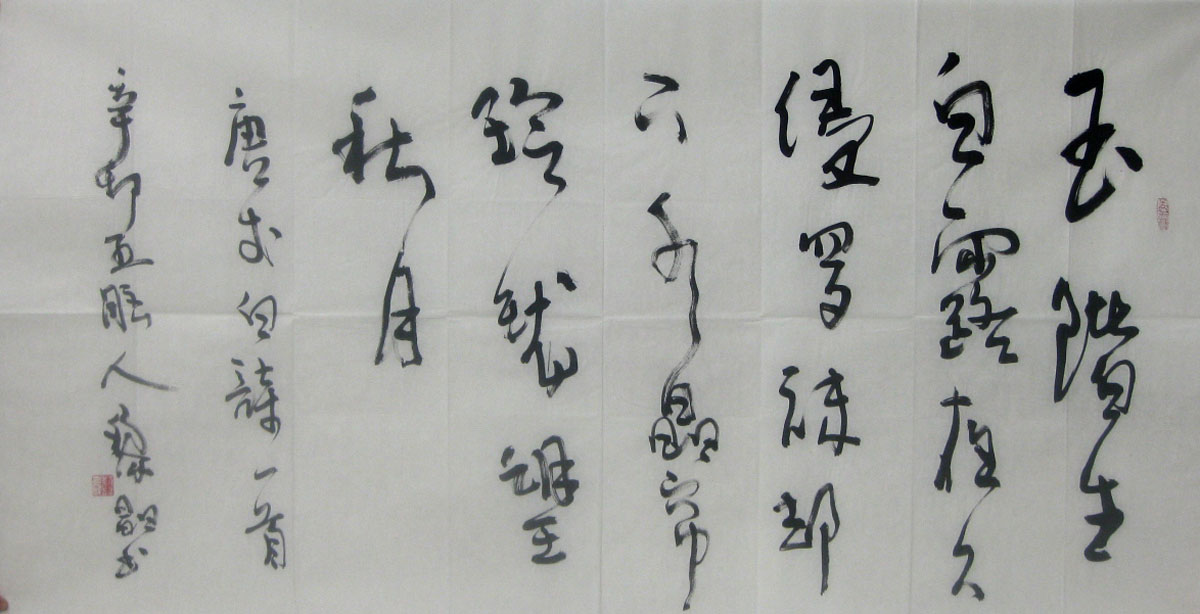 玉階生
白露夜久
侵羅襪却
下水晶帘
玲瓏望
秋月
唐李白詩一首
辛卯五 人 书